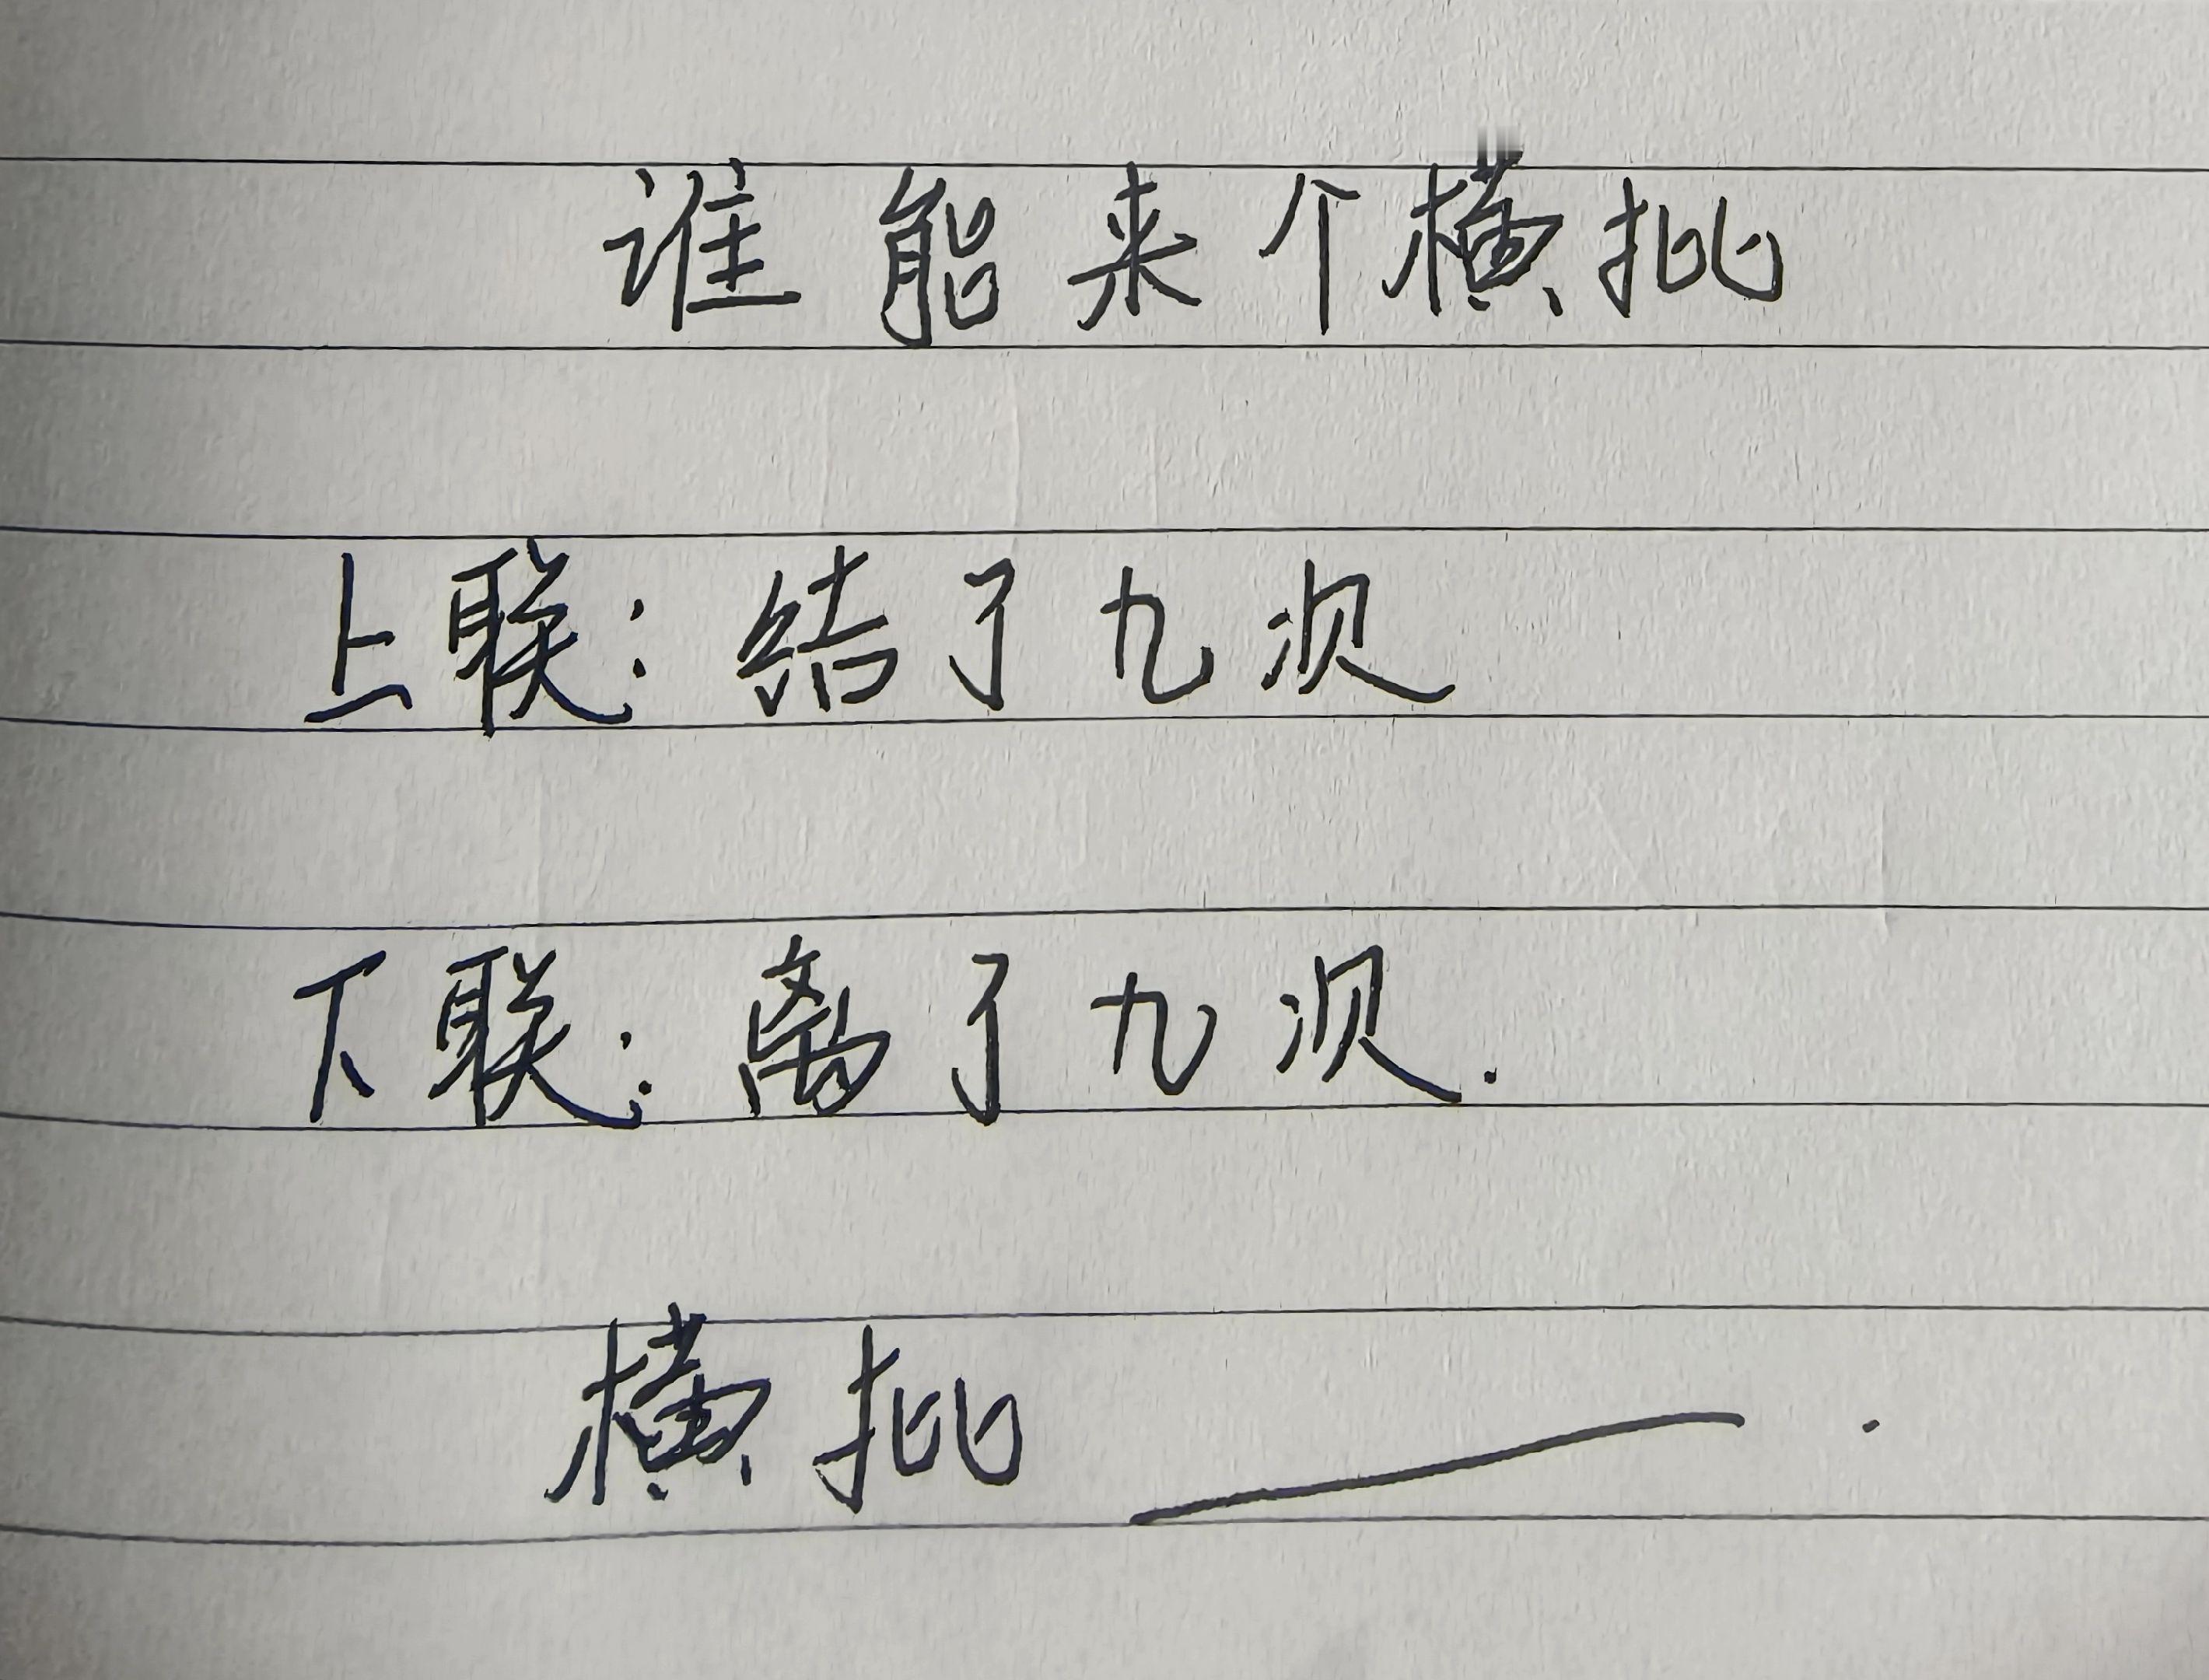 谁能来个横批
上联：结了九次
下联：离了九次.
横批 ———.